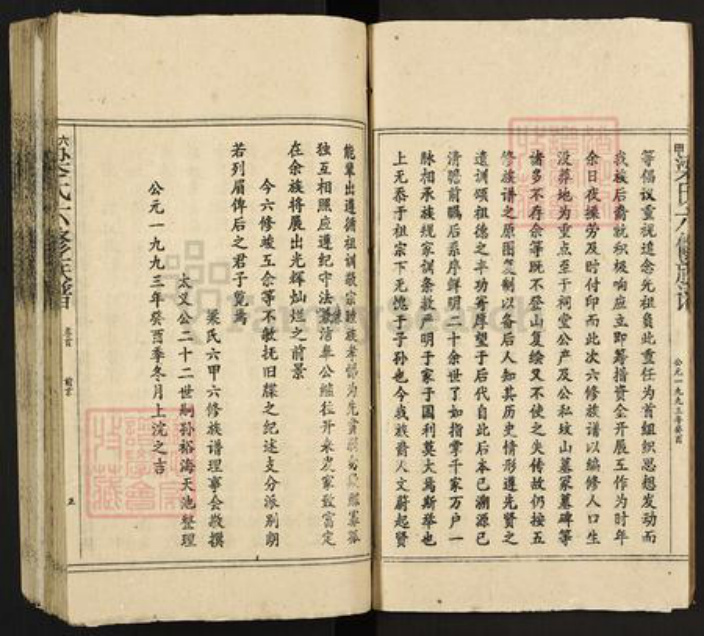 等倡议重视追念先祖负此重任为首组织思想发动而
我族后裔就积极响应立即筹措资金开展工作为时年
余日夜操劳及时付印而此次六修族谱以编修人口生
没葬地为重点至于祠堂公产及公私坟山墓冢墓碑等
诸多不存余等既不登山复绘又不使之失传故仍按五
修族谱之原图复制以备后人知其历史情形遵先贤之
遗训颂祖德之丰功寄厚望于后代自此后本已溯源已
清瞻前瞩后系序鲜明二十余世了如指掌千家万户一
脉相承族规家训条教严明于家于国利莫大焉斯举也
上无忝于祖宗下无愧于子孙也今我族裔人文蔚起贤
公元一九九三年癸酉
能辈出遵循祖训敬宗睦族孝悌为先
独互相照应遵纪守法
在余族将展出光辉灿烂之前景
今六修竣工余等不敏抚旧牒之纪述支分派别朗
若列眉俾后之君子览焉
梁氏六甲六修族谱理事会敬撰
太义公二十二世嗣孙裕海天池整理
公元一九九三年癸酉季冬月上浣之吉
卷首
五